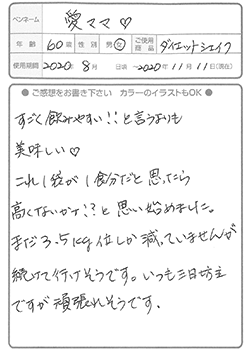 ペンネーム 愛ママ♡
年齢 60歳 性別 男・女 ご使用商品 ダイエットシェイク
使用期間 2020年 8月 日頃 〜2020年11月11日(現在)
● ご感想をお書き下さい カラーのイラストもOK ●
すごく飲みやすい!!と言うよりも
美味しい♡
これ1袋が1食分だと思ったら
高くないカナ!?と思い始めました。
まだ3.5kg位しか減っていませんが
続けて行けそうです。いつも三日坊主
ですが頑張れそうです.